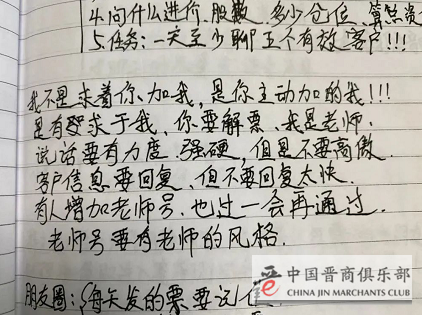 4.问什么进价、股数、多少仓位、算点卖
5.任务:一天至少聊五个有效客户!!!
我不是求着你、加我,是你主动加的我!!!
是有求于我,你要解票、我是老师.
说话要有力度.强硬,但是不要高傲.
客户信息要回复、但不要回复太快.
有人增加老师号.也过一会再通过.
老师号要有老师的风格.
朋友圈:每天发的票要记住
中国晋商俱乐部
CHINA JIN MARCHANTS CLUB